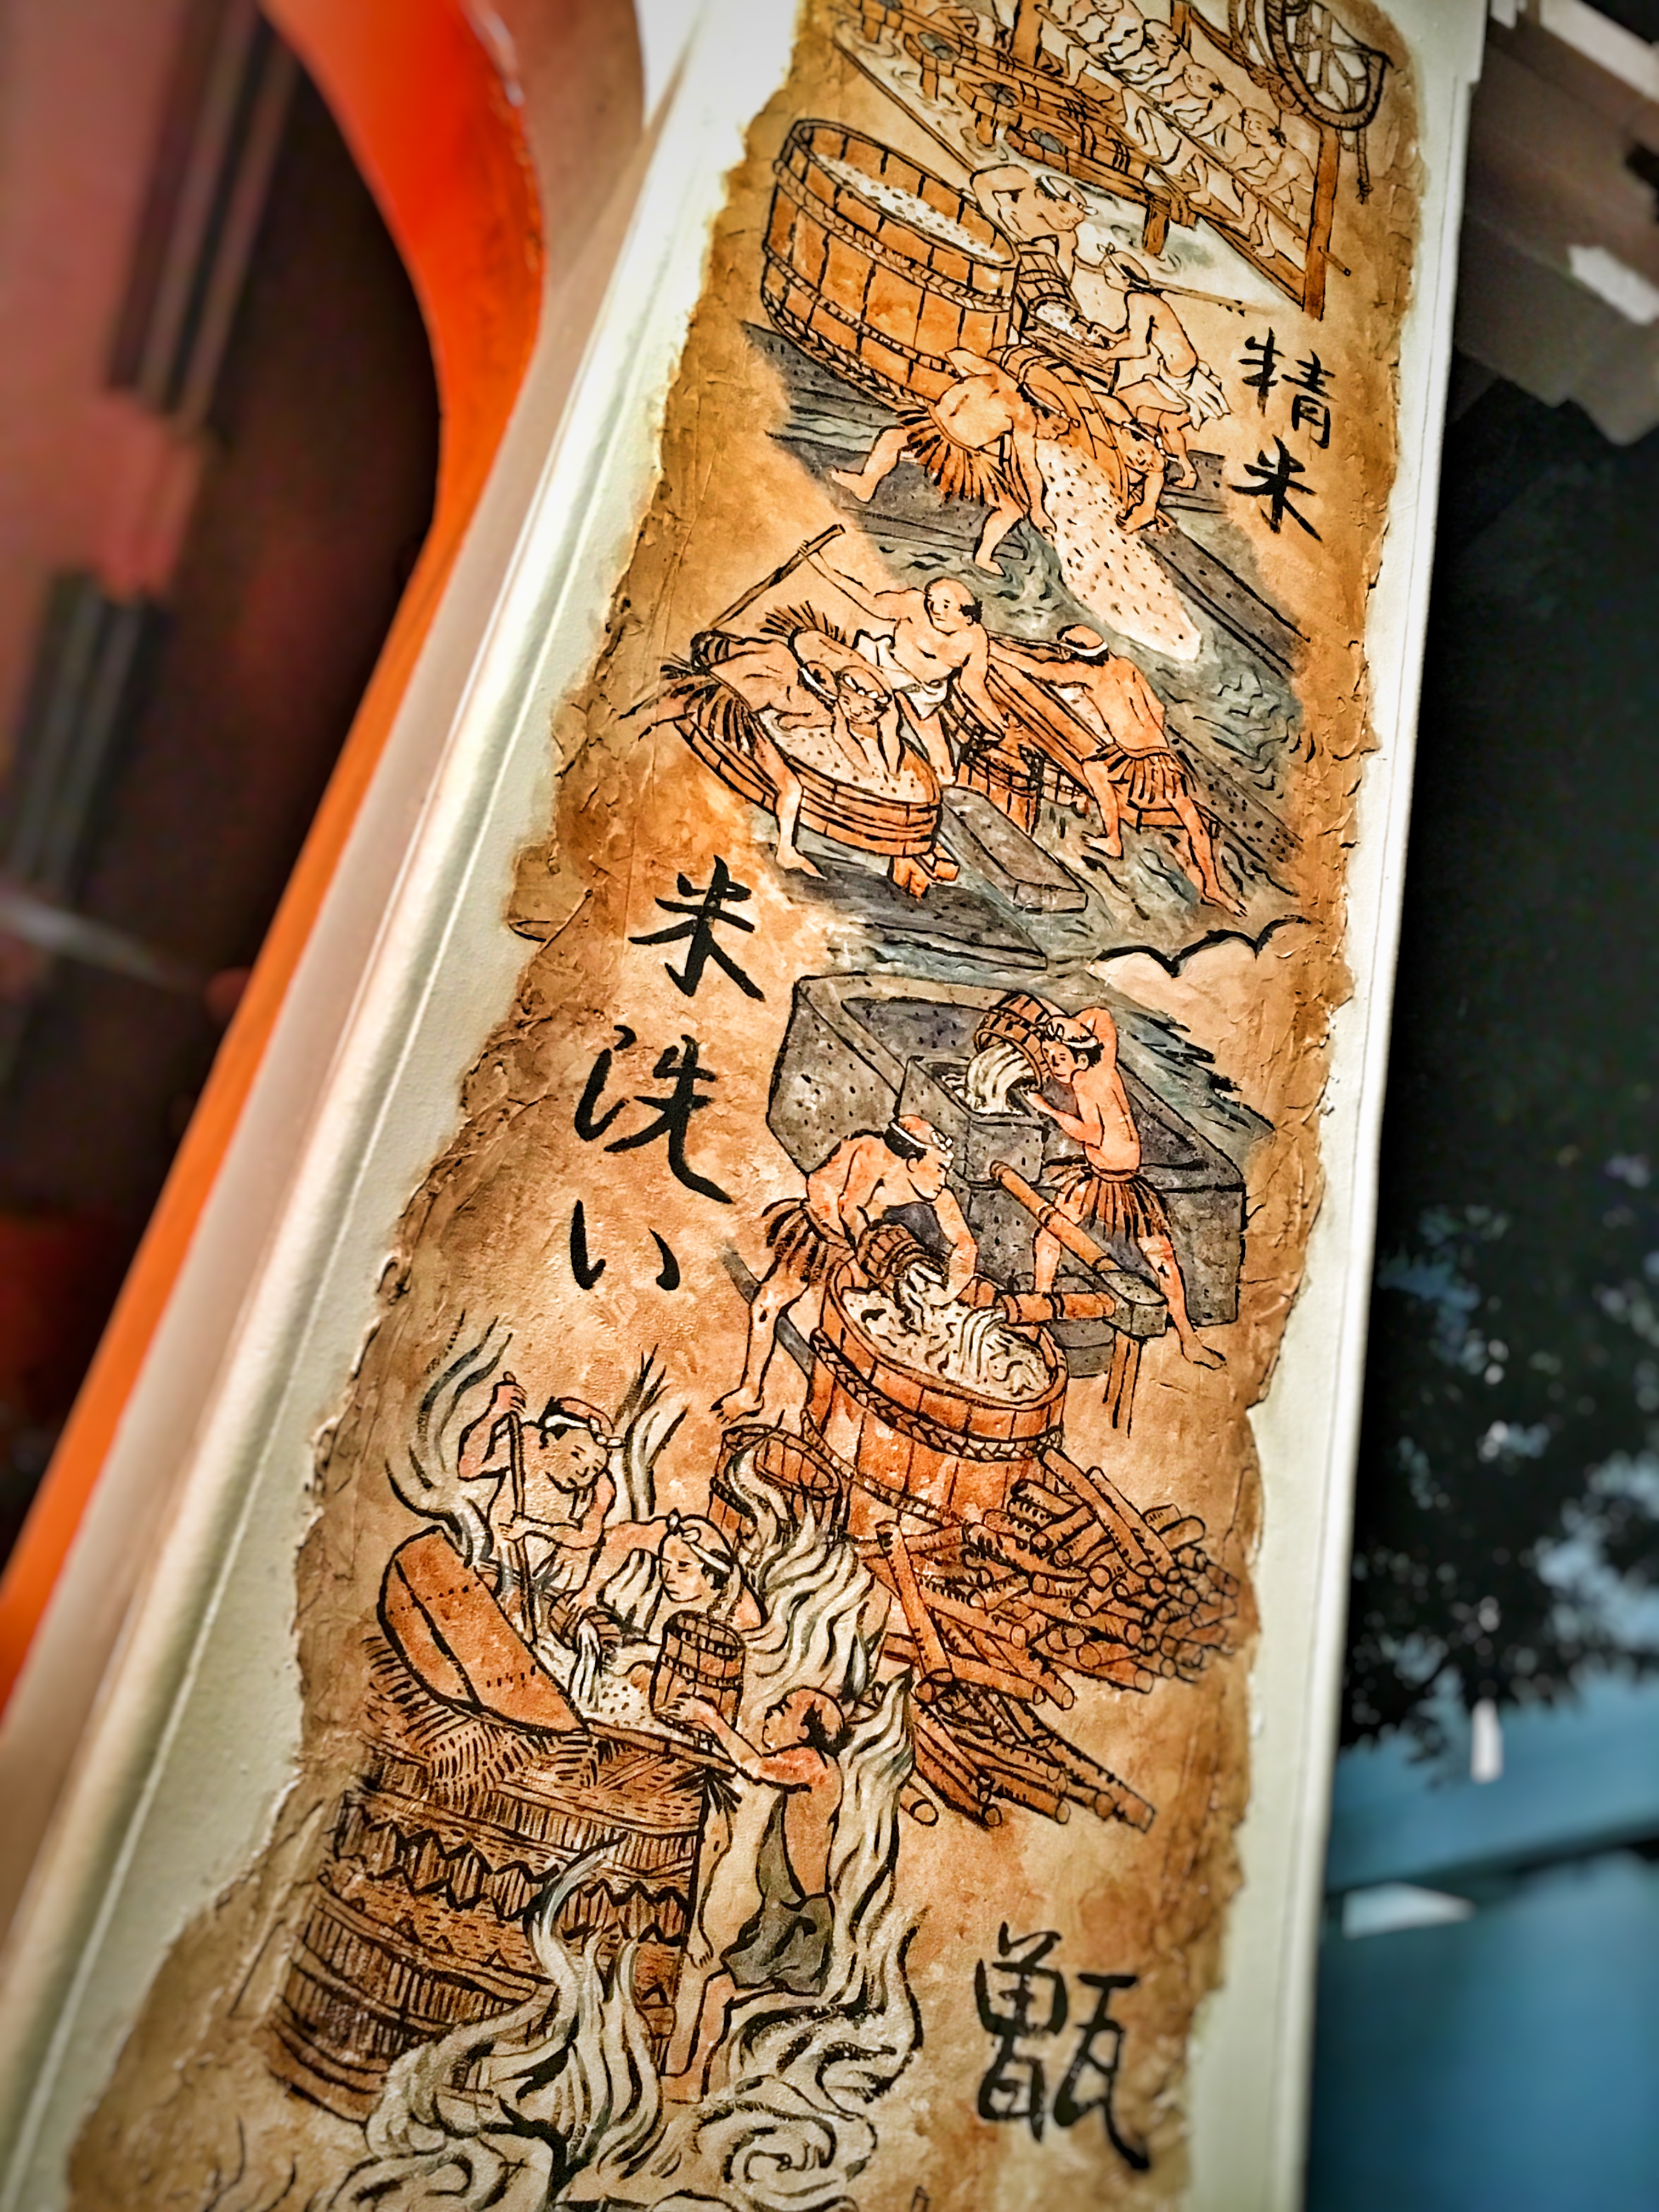 精米
米洗い
甑